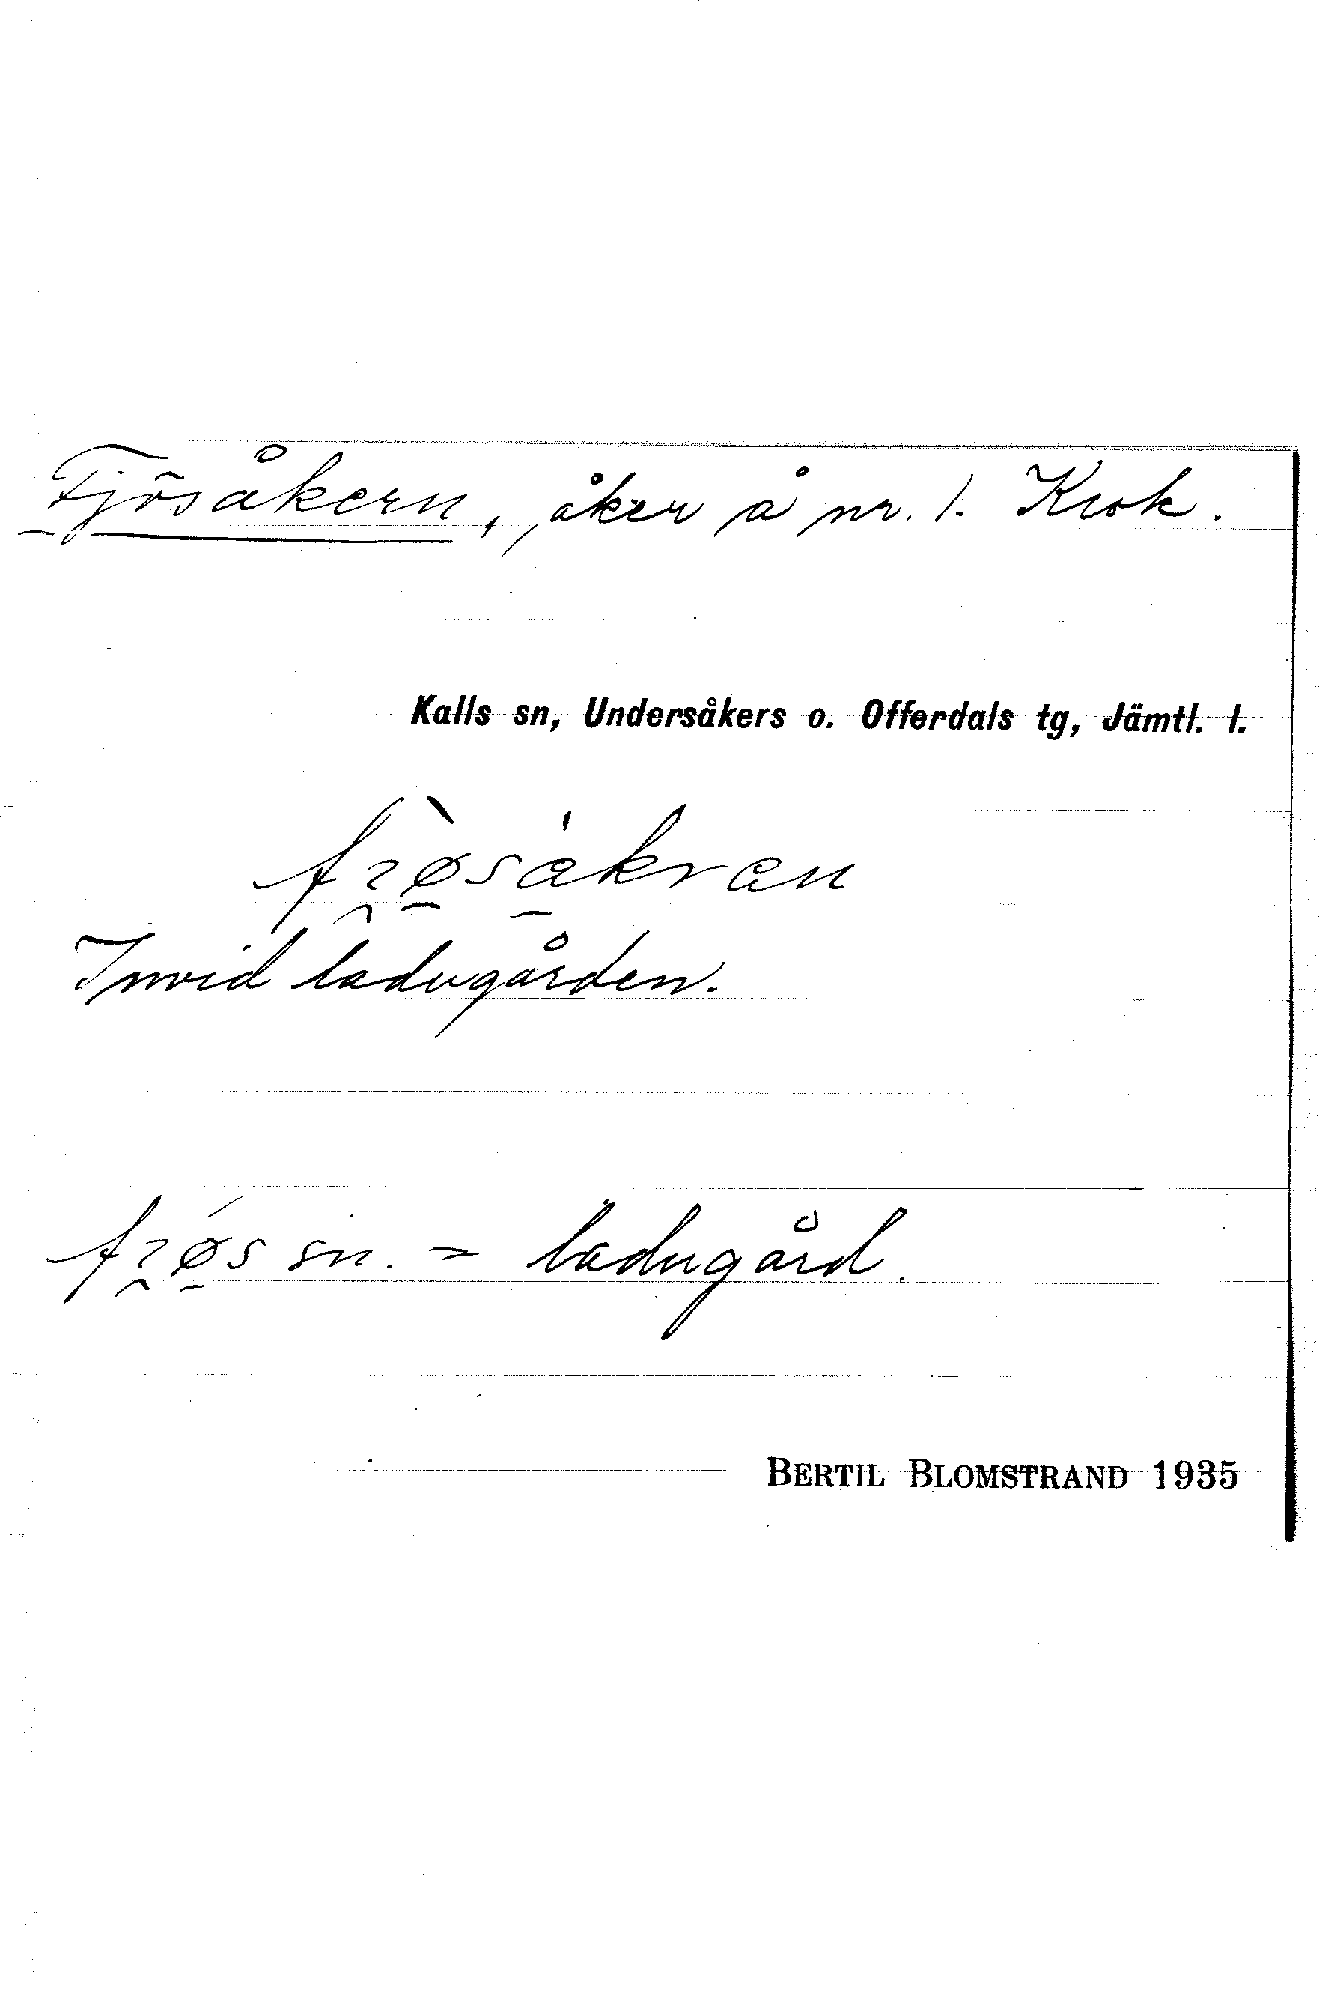 Fjösåkern, åker å nr. 1. Krok.
Kalls sn, Undersåkers o. Offerdals tg, Jämtl. l.
Invid ladugården.
sn. = ladugård.
BERTIL BLOMSTRAND 1935